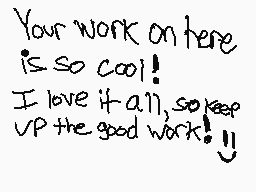 Your work on here
is so cool!
I love it all, so keep
up the good work! !!